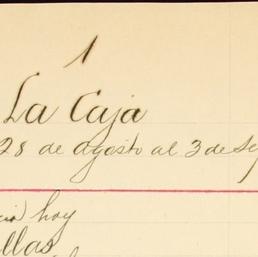 1
La Caja
28 de agosto al 3 de Se
hoy
llas